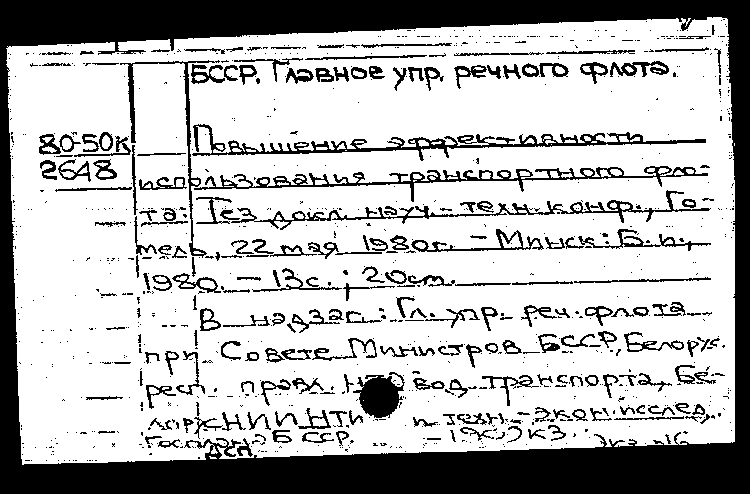 БССР. Главное упр. речного флота.
80-50к
2648
Повышение эффективности
использования транспортного фло-
та: Тез докл. науч.-техн. конф., Го-
мель, 22 мая 1980г. - Минск: Б. и.,
1980. - 13с.; 20см.
В надзаг.: Гл. упр. реч. флота
при Совете Министров БССР, Белорус.
респ. правл. НТО вод. транспорта, Бе-
лорусНИИНТИ и техн.-экон. исслед.
Госплана БССР.
ДСП.